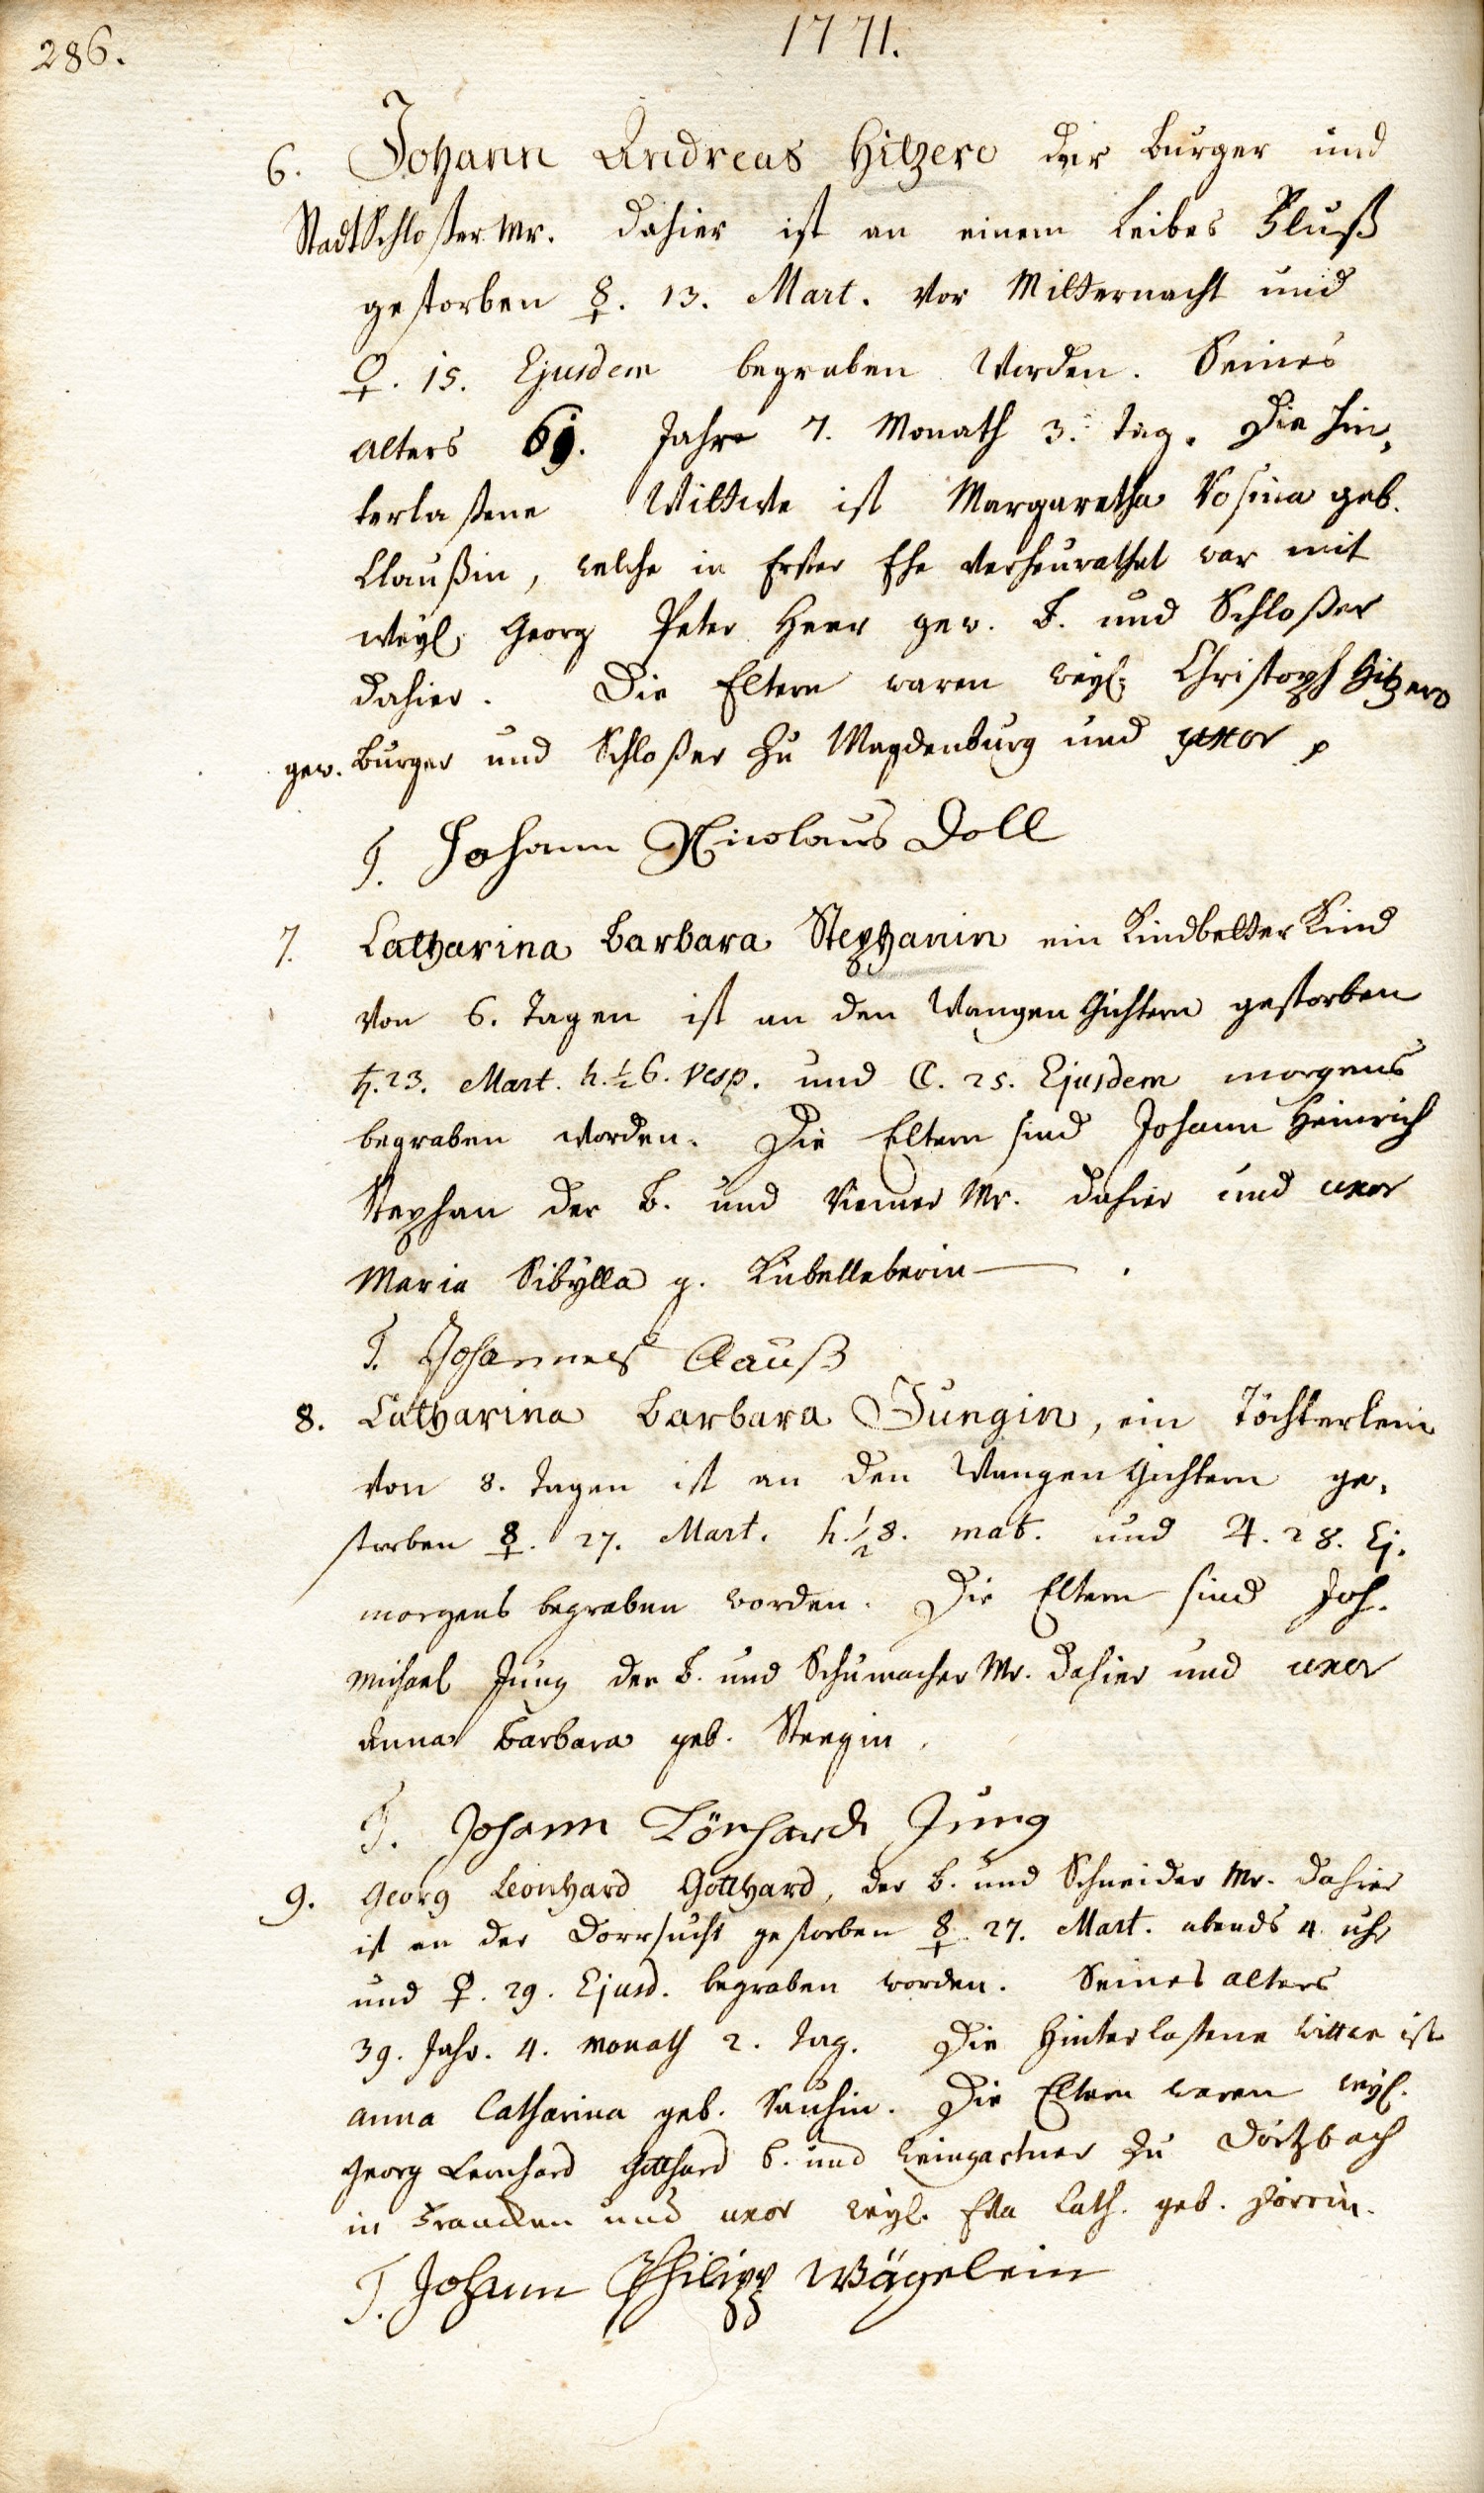 286.
1771.
6. Johann Andreas Hitzero der burger und
StadtSchloßer Mr. dahier ist an einem Leibes Fluß
gestorben ☿. 13. Mart. vor Mitternacht und
♀. 15. Ejusdem begraben worden. Seines
alters 69. Jahre 7. Monath 3. tag. Die hin-
terlaßene Wittwe ist Margaretha Rosina geb.
Claußin, welche in Erster Ehe verheurathet war mit
weyl. Georg Peter Heer gew. b. und Schloßer
dahier. Die Eltern waren weyl. Christoph Hitzero
gew. burger und Schloßer zu Magdenburg und uxor
T. Johann Nicolaus Doll
7. Catharina barbara Stephanin ein Kindbetter Kind
von 6. Tagen ist an den Wangen Gichtern gestorben
♄. 23. Mart. h. ½ 6. vesp. und ☾. 25. Ejusdem morgens
begraben worden. Die Eltern sind Johann Heinrich
Stephan der b. und Riemer Mr. dahier und uxor
Maria Sibÿlla g. Kübelleberin — .
T. Johannes Clauß
8. Catharina barbara Jungin, ein Töchterlein
von 8. Tagen ist an den Wangen Gichtern ge-
storben ☿. 27. Mart. h. ½ 8. mat. und ♃. 28. Ej.
morgens begraben worden. Die Eltern sind Joh.
Michael Jung der b. und Schumacher Mr. dahier und uxor
Anna Barbara geb. Stegin.
T. Johann Lönhard Jung
9. Georg Leonhard Gotthard, der b. und Schneider Mr. dahier
ist an der Dorrsucht gestorben ☿. 27. Mart. abends 4 uhr
und ♀. 29. Ejusd. begraben worden. Seines alters
39. Jahr. 4. Monath 2. Tag. Die Hinterlaßene Wittwe ist
Anna Catharina geb. Die Eltern waren weyl.
Georg Leonhard Gotthard b. und Weingartner zu Dörtzbach
in Francken und uxor weyl. Eva Cath. geb.
T. Johann Philipp Wägelein